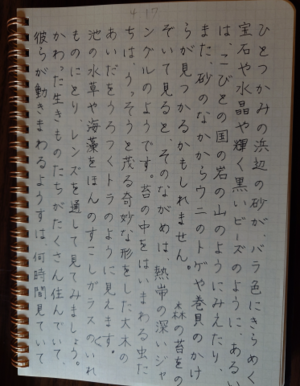 ひとつかみの浜辺の砂が、バラ色にきらめく
宝石や水晶や輝く黒いビーズのように、ある
は、こびとの国の岩の山のようにみえたり、
また、砂のなかからウニのトゲや巻貝のかけ
らが見つかるかもしれません。森の苔をの
ぞいて見ると、そのながめは、熱帯の深いジャ
ングルのようです。苔の中をはいまわる虫た
ちは、うっそうと茂る奇妙な形をした大木の
あいだをうろつくトラのように見えます。
池の水草や海藻をほんのすこしガラスのいれ
ものにとり、レンズを通して見てみましょう。
かわった生きものたちがたくさん住んでいて、
彼らが動きまわるようすは、何時間見ていて